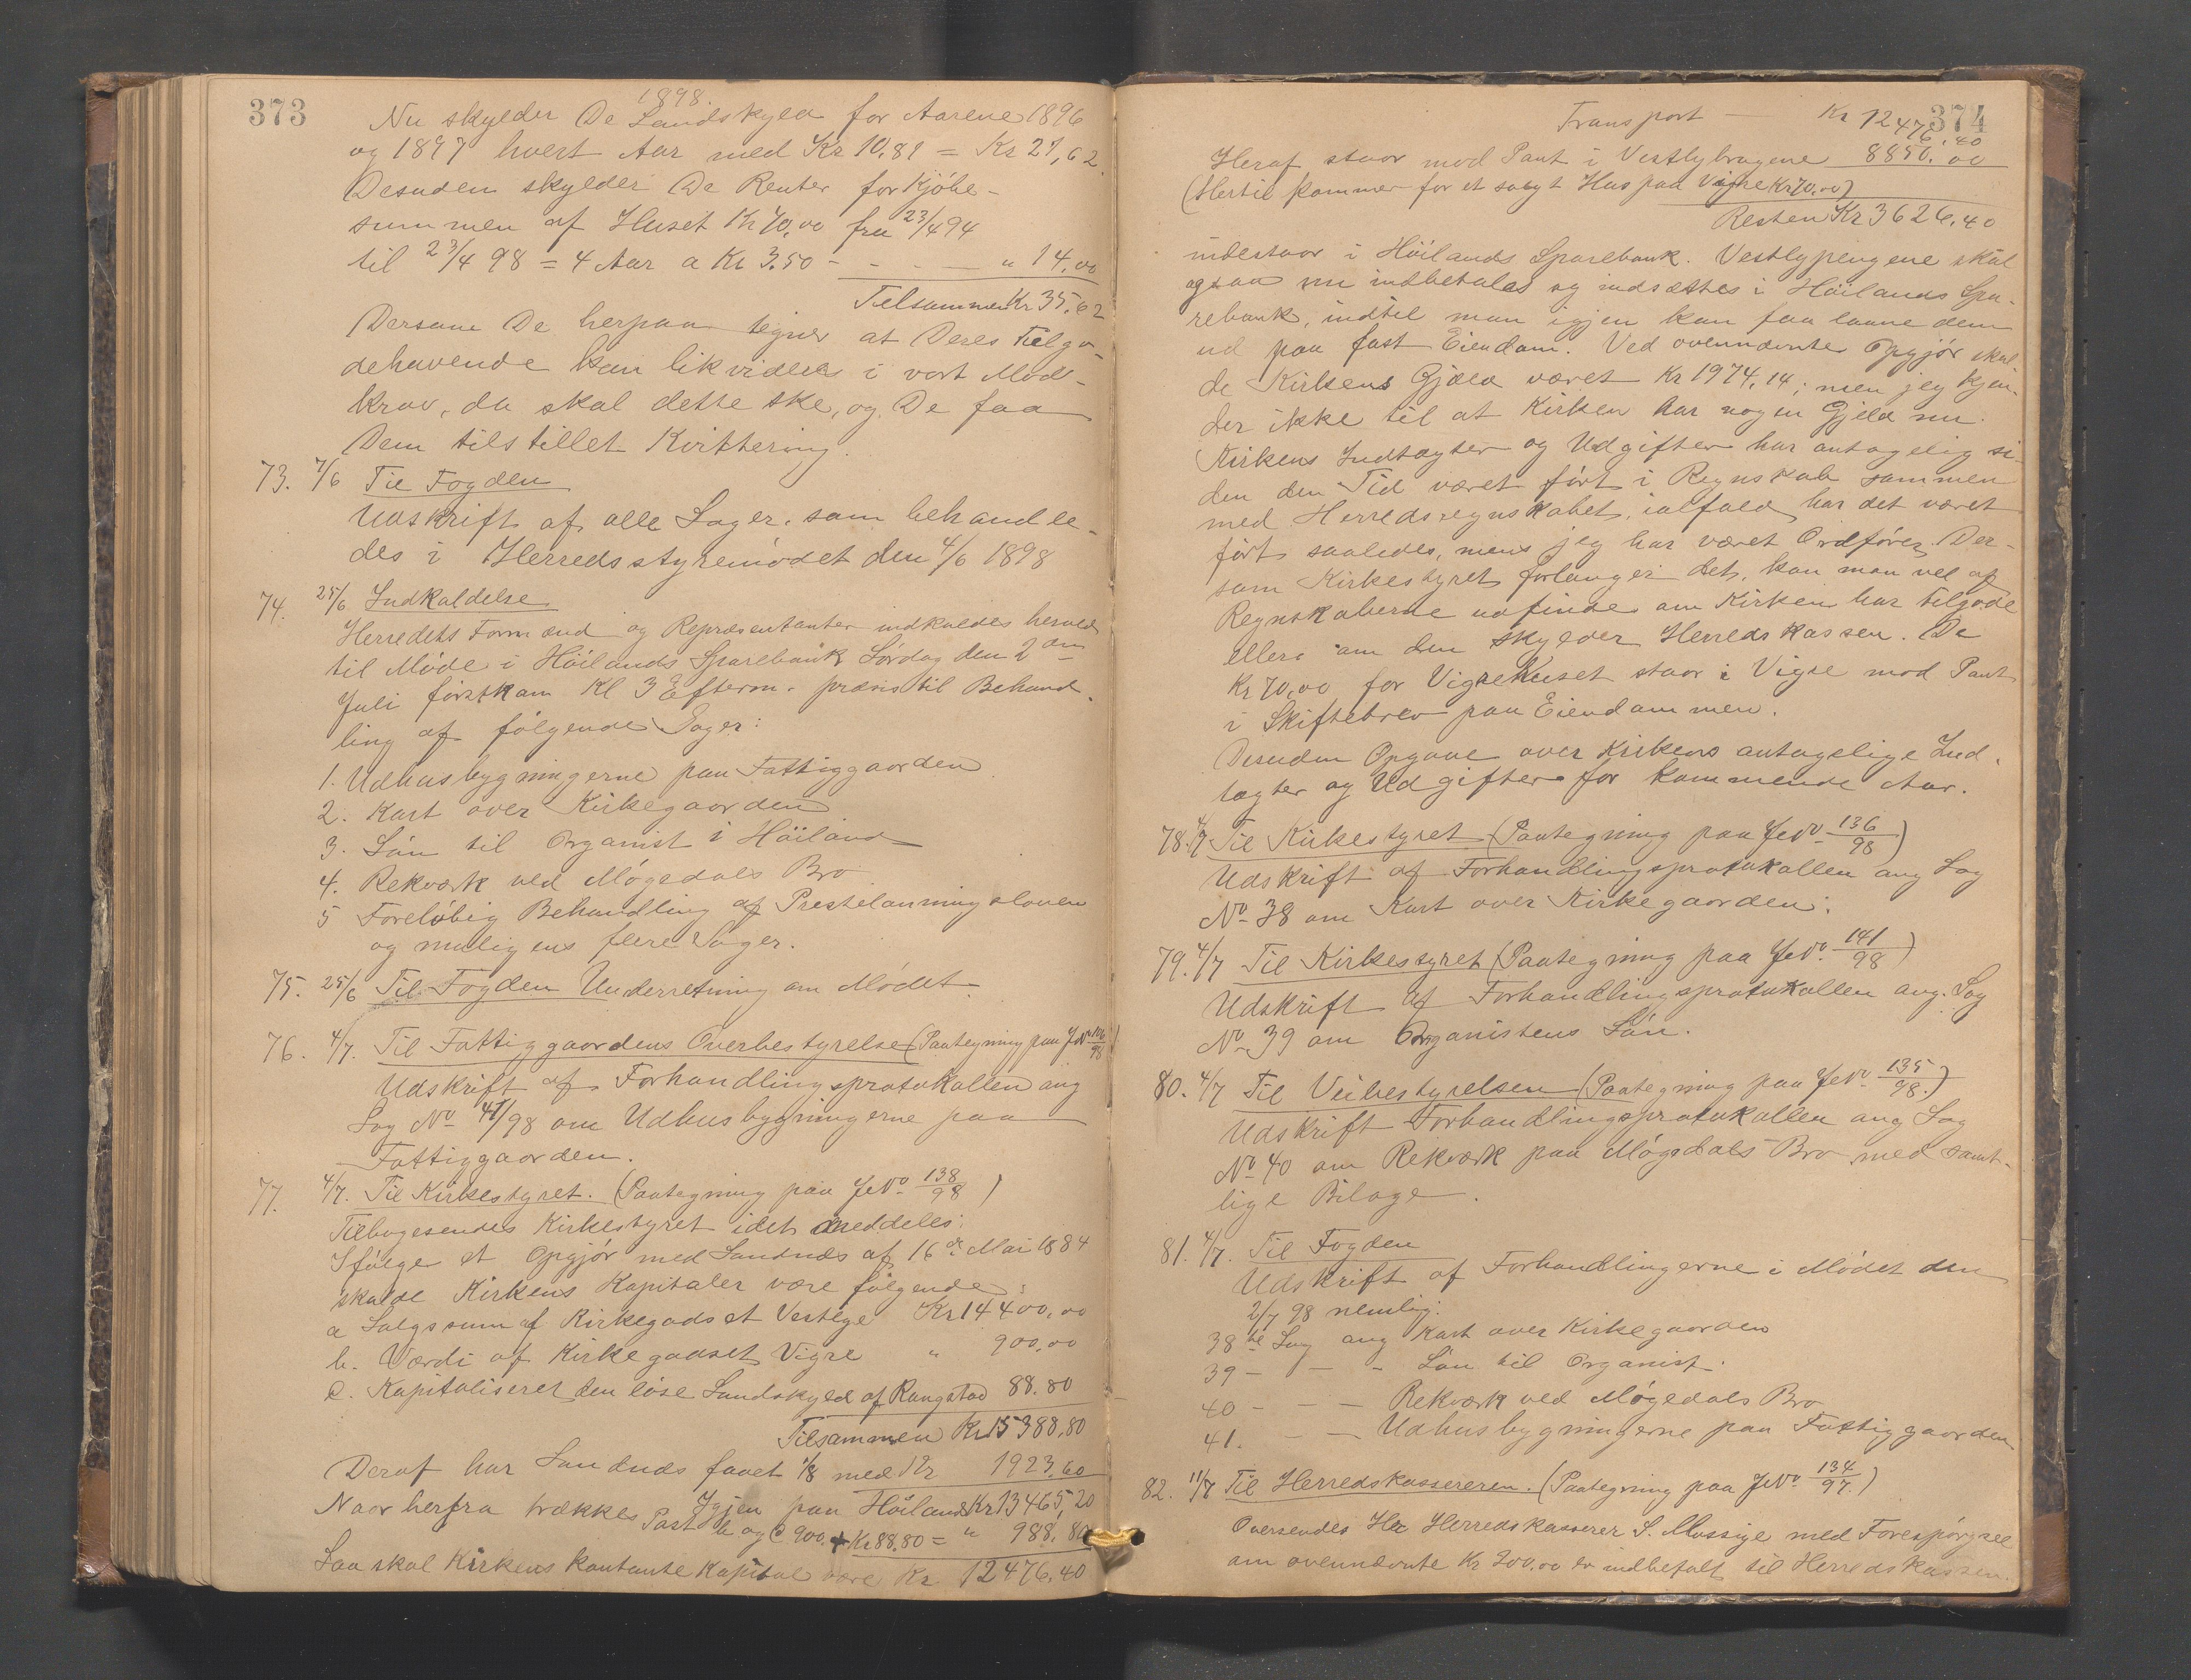 373
1898.
Nu skylder De Landskyld for Aarene 1896
og 1897 hvert Aar med Kr 10.81 = Kr 21,62
Desuden skylder De Renter for Kjöbe-
summen af Huset Kr 70,00 fra 23/4 94
til 23/4 98 = 4 Aar a Kr 3.50 - - - — " 14,00
Tilsammen Kr 35,62
Dersom De herpaa tegner at Deres Tilgo-
dehavende kan likvideres i vort Mod-
krav, da skal dette ske, og De faa
Dem tilstillet Kvittering.
73. 7/6 Til Fogden
Udskrift af alle Sager, som behandle-
des i Herredsstyremödet den 4/6 1898
74. 25/6 Indkaldelse
Herredets Formænd og Repræsentanter indkaldes herved
til Möde i Höilands Sparebank Lördag den 2den
Juli förstkom Kl 3 Efterm. præcis til Behand-
ling af fölgende Sager:
1. Udhusbygningerne paa Fattiggaarden
2. Kart over Kirkegaarden
3. Lön til Organist i Höiland
4. Rekværk ved Mögedals Bro
5 Forelöbig Behandling af Prestelönningsloven
og muligens flere Sager.
75. 25/6 Til Fogden Underretning om Mödet.
76. 4/7. Til Fattiggaardens Overbestyrelse (Paategning paa J No /98)
Udskrift af Forhandlingsprotokollen ang
Sag No 41/98 om Udhusbygningerne paa
Fattiggaarden.
77. 4/7. Til Kirkestyret. (Paategning paa J No 138/98)
Tilbagesendes Kirkestyret idet meddeles:
Ifölge et Opgjör med Sandnæs af 16de Mai 1884
skulde Kirkens Kapitaler være fölgende:
a Salgssum af Kirkegodset Vestlye Kr 14400,00
b. Værdi af Kirkegodset Vigre " 900,00
c. Kapitaliseret den löse Landskyld af Rangstad 88.80
Tilsammen Kr 15388,80
Deraf har Sandnæs faaet 1/8 med Kr 1923,60
Igjen paa Höiland Kr 13465,20
Naar herfra trækkes Post b og c 900. + Kr 88.80 = " 988.80
Saa skal Kirkens kontante Kapital være Kr. 12476,40
374
Transport — Kr 12476,40
Heraf staar mod Pant i Vestlybrugene 8850.00
(Hertil kommer for et solgt Hus paa Vigre Kr 70,00)
Resten Kr 3626,40
indestaar i Höilands Sparebank. Vestlypengene skal
ogsaa nu indbetales og indsættes i Höilands Spa-
rebank, indtil man igjen kan faa laane dem
ud paa fast Eiendom. Ved ovennævnte Opgjör skul-
de Kirkens Gjæld været Kr 1974,14; men jeg kjen-
der ikke til at Kirken har nogen Gjeld nu.
Kirkens Indtægter og Udgifter har antagelig si-
den den Tid været fört i Regnskab sammen
med Herredsregnskabet, ialfald har det været
fört saaledes, mens jeg har været Ordförer. Der-
som Kirkestyret forlanger det, kan man vel af
Regnskaberne udfinde om Kirken har tilgode
eller om den skylder Herredskassen. De
Kr 70,00 for Vigrehuset staar i Vigre mod Pant
i Skiftebrev paa Eiendommen.
Desuden Opgave over Kirkens antagelige Ind-
tægter og Udgifter for kommende Aar.
78. 4/7 Til Kirkestyret (Paategning paa J No 136/98)
Udskrift af Forhandlingsprotokollen ang Sag
No 38 om Kart over Kirkegaarden.
79. 4/7 Til Kirkestyret (Paategning paa J No 141/98)
Udskrift af Forhandlingsprotokollen ang. Sag
No 39 om Organistens Lön.
80. 4/7 Til Veibestyrelsen (Paategning paa J No 135/98.)
Udskrift Forhandlingsprotokollen ang Sag
No 40 om Rekværk paa Mögedals Bro med samt-
lige Bilage.
81. 4/7. Til Fogden
Udskrift af Forhandlingerne i Mödet den
2/7 98 nemlig:
38te Sag ang Kart over Kirkegaarden
39 - — - Lön til Organist.
40 - — — Rekværk ved Mögedals Bro
41. — — Udhusbygningerne paa Fattiggaarden
82. 11/7 Til Herredskassereren. (Paategning paa J No 134/97.)
Oversendes Hr Herredskasserer S. Mossige med Forespörgsel
om ovennævnte Kr 200,00 er indbetalt til Herredskassen.